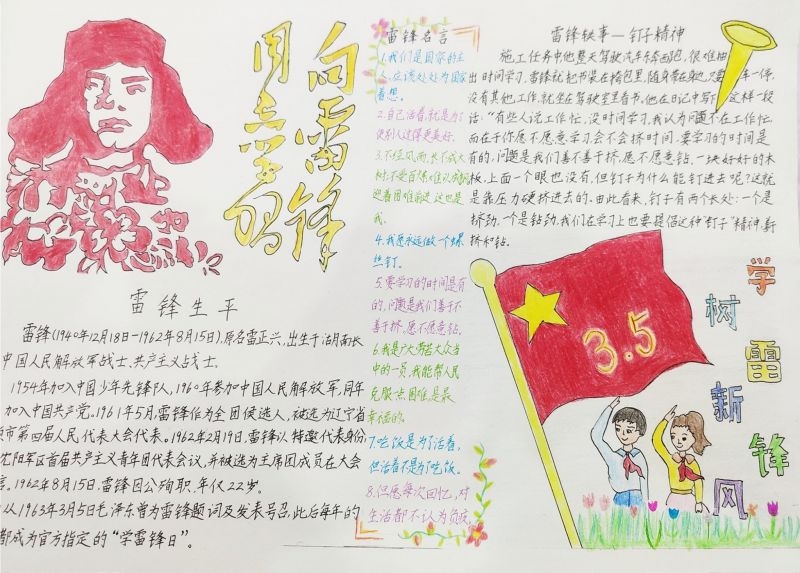 向雷锋
同志学习
雷锋生平
雷锋(1940年12月18日-1962年8月15日),原名雷正兴,出生于湖南长
中国人民解放军战士、共产主义战士。
1954年加入中国少年先锋队,1960年参加中国人民解放军,同年
加入中国共产党。1961年5月,雷锋作为全团候选人,被选为辽宁省
市第四届人民代表大会代表。1962年2月19日,雷锋以特邀代表身份
沈阳军区首届共产主义青年团代表会议,并被选为主席团成员在大会
言。1962年8月15日,雷锋因公殉职,年仅22岁。
从1963年3月5日毛泽东曾为雷锋题词及发表号召,此后每年的
都成为官方指定的“学雷锋日”。
雷锋名言
1.我们是国家的主
人,应该处处为国家
着想。
2.自己活着,就是为了
使别人过得更美好.
3.不经风雨,长不成大
树;不受百炼,难以成钢
迎着困难前进,这也是
我.
4.我愿永远做个螺
丝钉。
5.要学习的时间是有
的,问题是我们善于不
善于挤,愿不愿意钻.
6.我是广大劳苦大众当
中的一员,我能帮人民
克服一点困难,是最
幸福的.
7.吃饭是为了活着,
但活着不是为了吃饭.
8.但愿每次回忆,对
生活都不认为负疚
雷锋轶事—钉子精神
施工任务中他整天驾驶汽车东奔西跑,很难抽
出时间学习,雷锋就把书装在挎包里,随身带在身边,只要车一停,
没有其他工作,就坐在驾驶室里看书。他在日记中写下这样一段
话:“有些人说工作忙,没时间学习,我认为问题不在工作忙,
而在于你愿不愿意学习,会不会挤时间.要学习的时间是
有的,问题是我们善不善于挤,愿不愿意钻.一块好好的木
板,上面一个眼也没有,但钉子为什么能钉进去呢?这就
是靠压力硬挤进去的.由此看来,钉子有两个长处:一个是
挤劲,一个是钻劲,我们在学习上也要提倡这种“钉子”精神,善于
挤和钻。
3.5
学雷锋
树新风